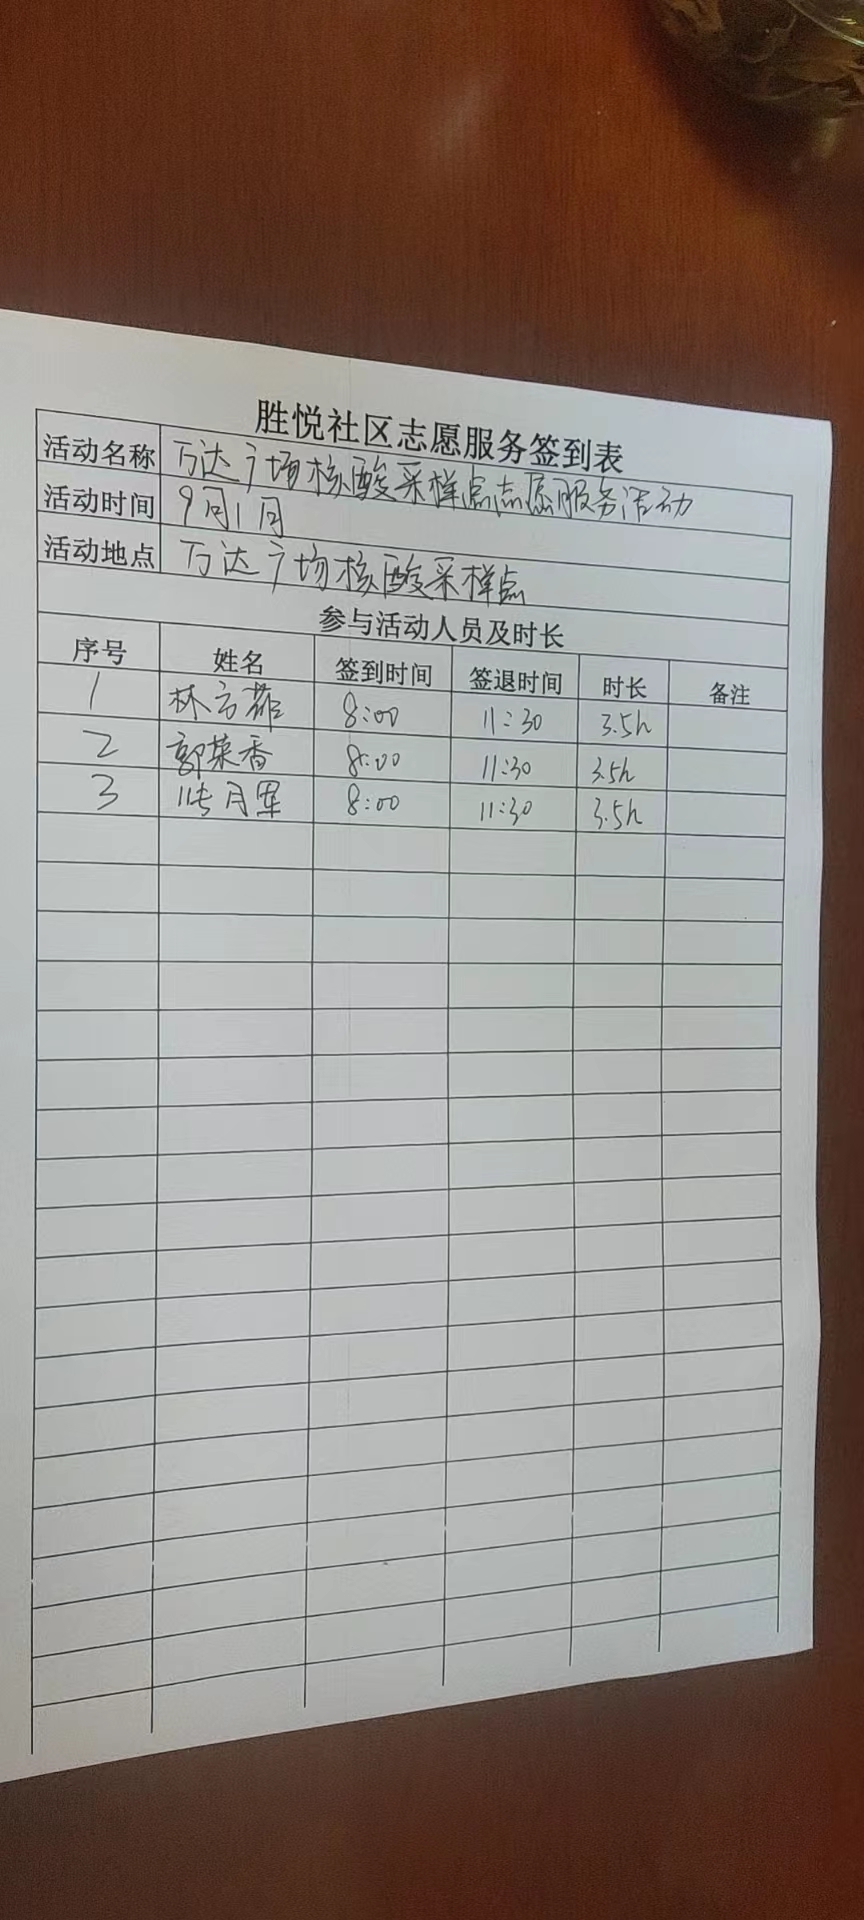 胜悦社区志愿服务签到表
活动名称 万达广场核酸采样点志愿服务活动
活动时间 9月1日
活动地点 万达广场核酸采样点
参与活动人员及时长
序号 姓名 签到时间 签退时间 时长 备注
1 林 8:00 11:30 3.5h
2 郭菜香 8:00 11:30 3.5h
3 月 8:00 11:30 3.5h